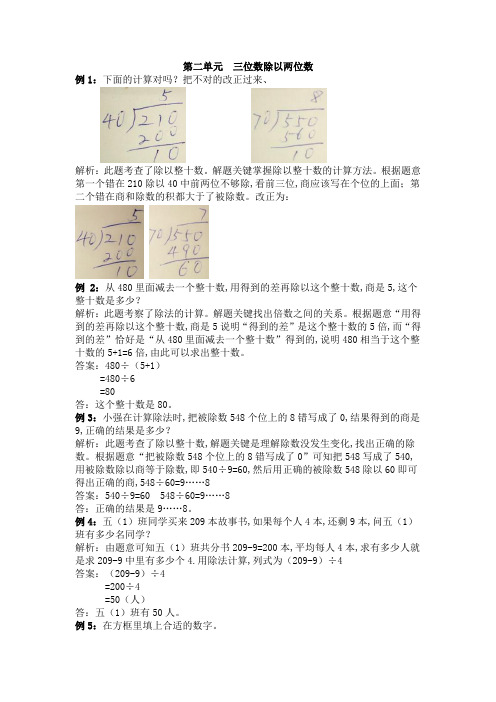 第二单元 三位数除以两位数
例1:下面的计算对吗?把不对的改正过来、
5
40)210
200
10
8
70)550
560
10
解析:此题考查了除以整十数。解题关键掌握除以整十数的计算方法。根据题意
第一个错在210除以40中前两位不够除,看前三位,商应该写在个位的上面;第
二个错在商和除数的积都大于了被除数。改正为:
5
40)210
200
10
7
70)550
490
60
例 2:从480里面减去一个整十数,用得到的差再除以这个整十数,商是5,这个
整十数是多少?
解析:此题考察了除法的计算。解题关键找出倍数之间的关系。根据题意“用得
到的差再除以这个整十数,商是5说明“得到的差”是这个整十数的5倍,而“得
到的差”恰好是“从480里面减去一个整十数”得到的,说明480相当于这个整
十数的5+1=6倍,由此可以求出整十数。
答案:480÷(5+1)
=480÷6
=80
答:这个整十数是80。
例3:小强在计算除法时,把被除数548个位上的8错写成了0,结果得到的商是
9,正确的结果是多少?
解析:此题考查了除以整十数,解题关键是理解除数没发生变化,找出正确的除
数。根据题意“把被除数548个位上的8错写成了0”可知把548写成了540,
用被除数除以商等于除数,即540÷9=60,然后用正确的被除数548除以60即可
得出正确的商,548÷60=9……8
答案:540÷9=60 548÷60=9……8
答:正确的结果是9……8。
例4:五(1)班同学买来209本故事书,如果每个人4本,还剩9本,问五(1)
班有多少名同学?
解析:由题意可知五(1)班共分书209-9=200本,平均每人4本,求有多少人就
是求209-9中里有多少个4.用除法计算,列式为(209-9)÷4
答案:(209-9)÷4
=200÷4
=50(人)
答:五(1)班有50人。
例5:在方框里填上合适的数字。